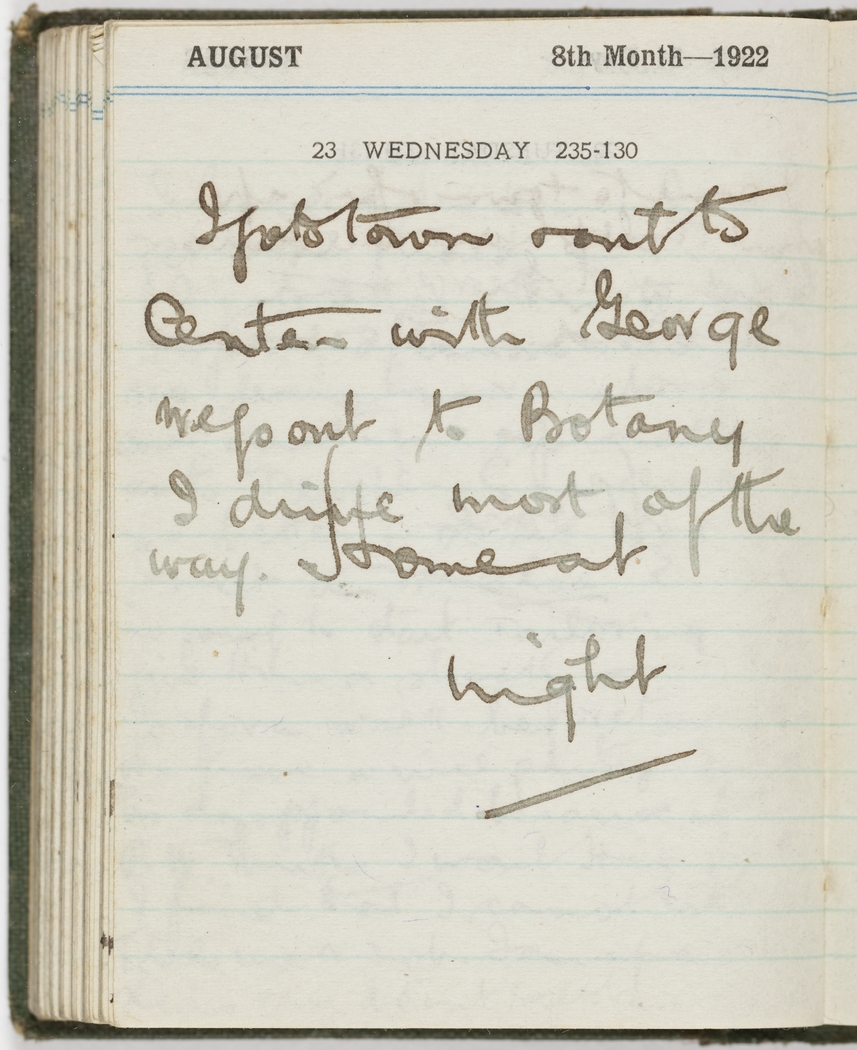 AUGUST 8th Month—1922
23 WEDNESDAY 235-130
I go to town & out to
Center with George
we go out to Botany
I drive most of the
way. Home at
night